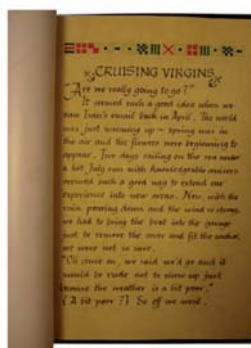 CRUISING VIRGINS
"Are we really going to go?"
It seemed such a good idea when we
saw Ivan's email back in April. The world
was just warming up – spring was in
the air and the flowers were beginning to
appear. Five days sailing on the sea under
a hot July sun with knowledgeable
seemed such a good way to extend our
experience into new areas. Now, with the
rain pouring down and the wind so strong
we had to bring the boat into the garage
just to remove the cover and fit the anchor,
we were not so sure.
"Oh come on, we said we'd go and it
would be rude not to show up just
because the weather is a bit poor."
(A bit poor?) So off we went.